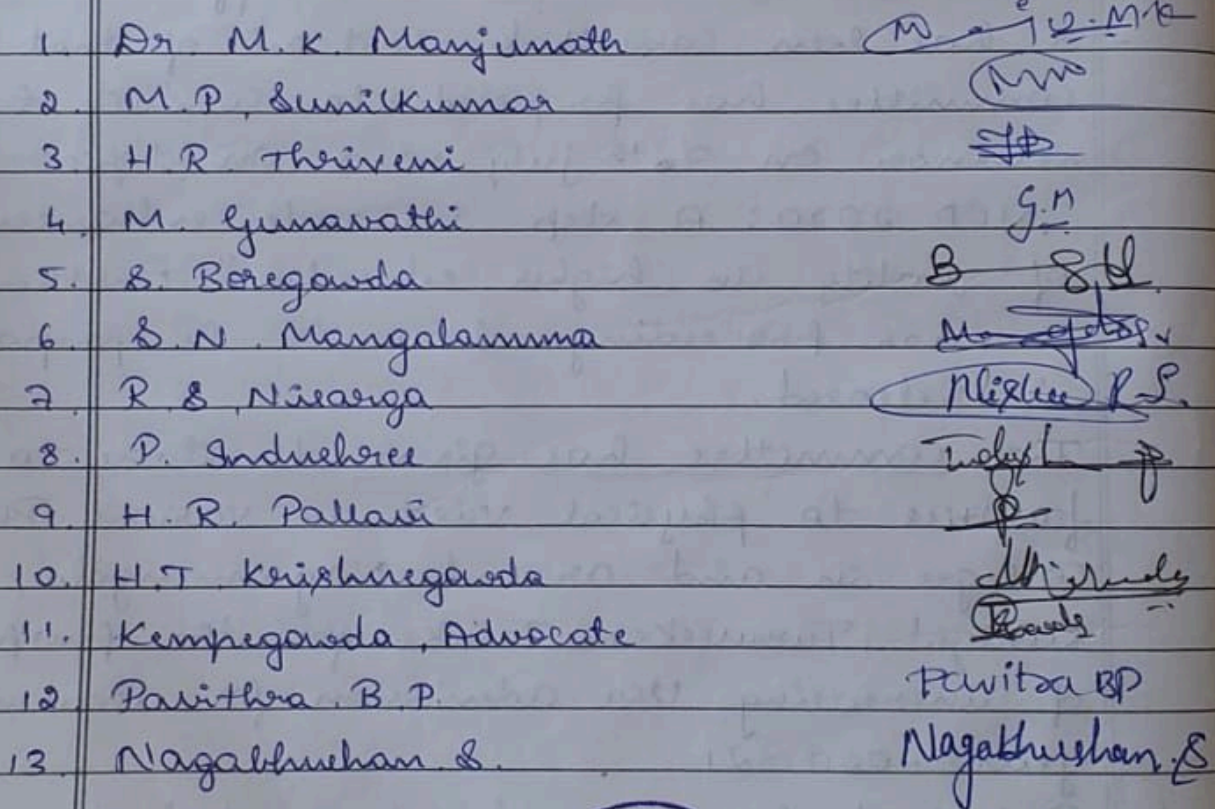 1. Dr M. K. Manjunath
2. M. P. Sunilkumar
3. H. R. Thriveni
4. M. Gunavathi G.M
5. S. Boregowda B S
6. S. N. Mangalamma
7 R S Nisarga R.S.
8. P. Indushree
9. H. R. Pallavi
10. H.T Krishnegowda
11. Kempegowda, Advocate
12 Pavithra. B.P. Pavitra BP
13. Nagabhushan S. Nagabhushan.S